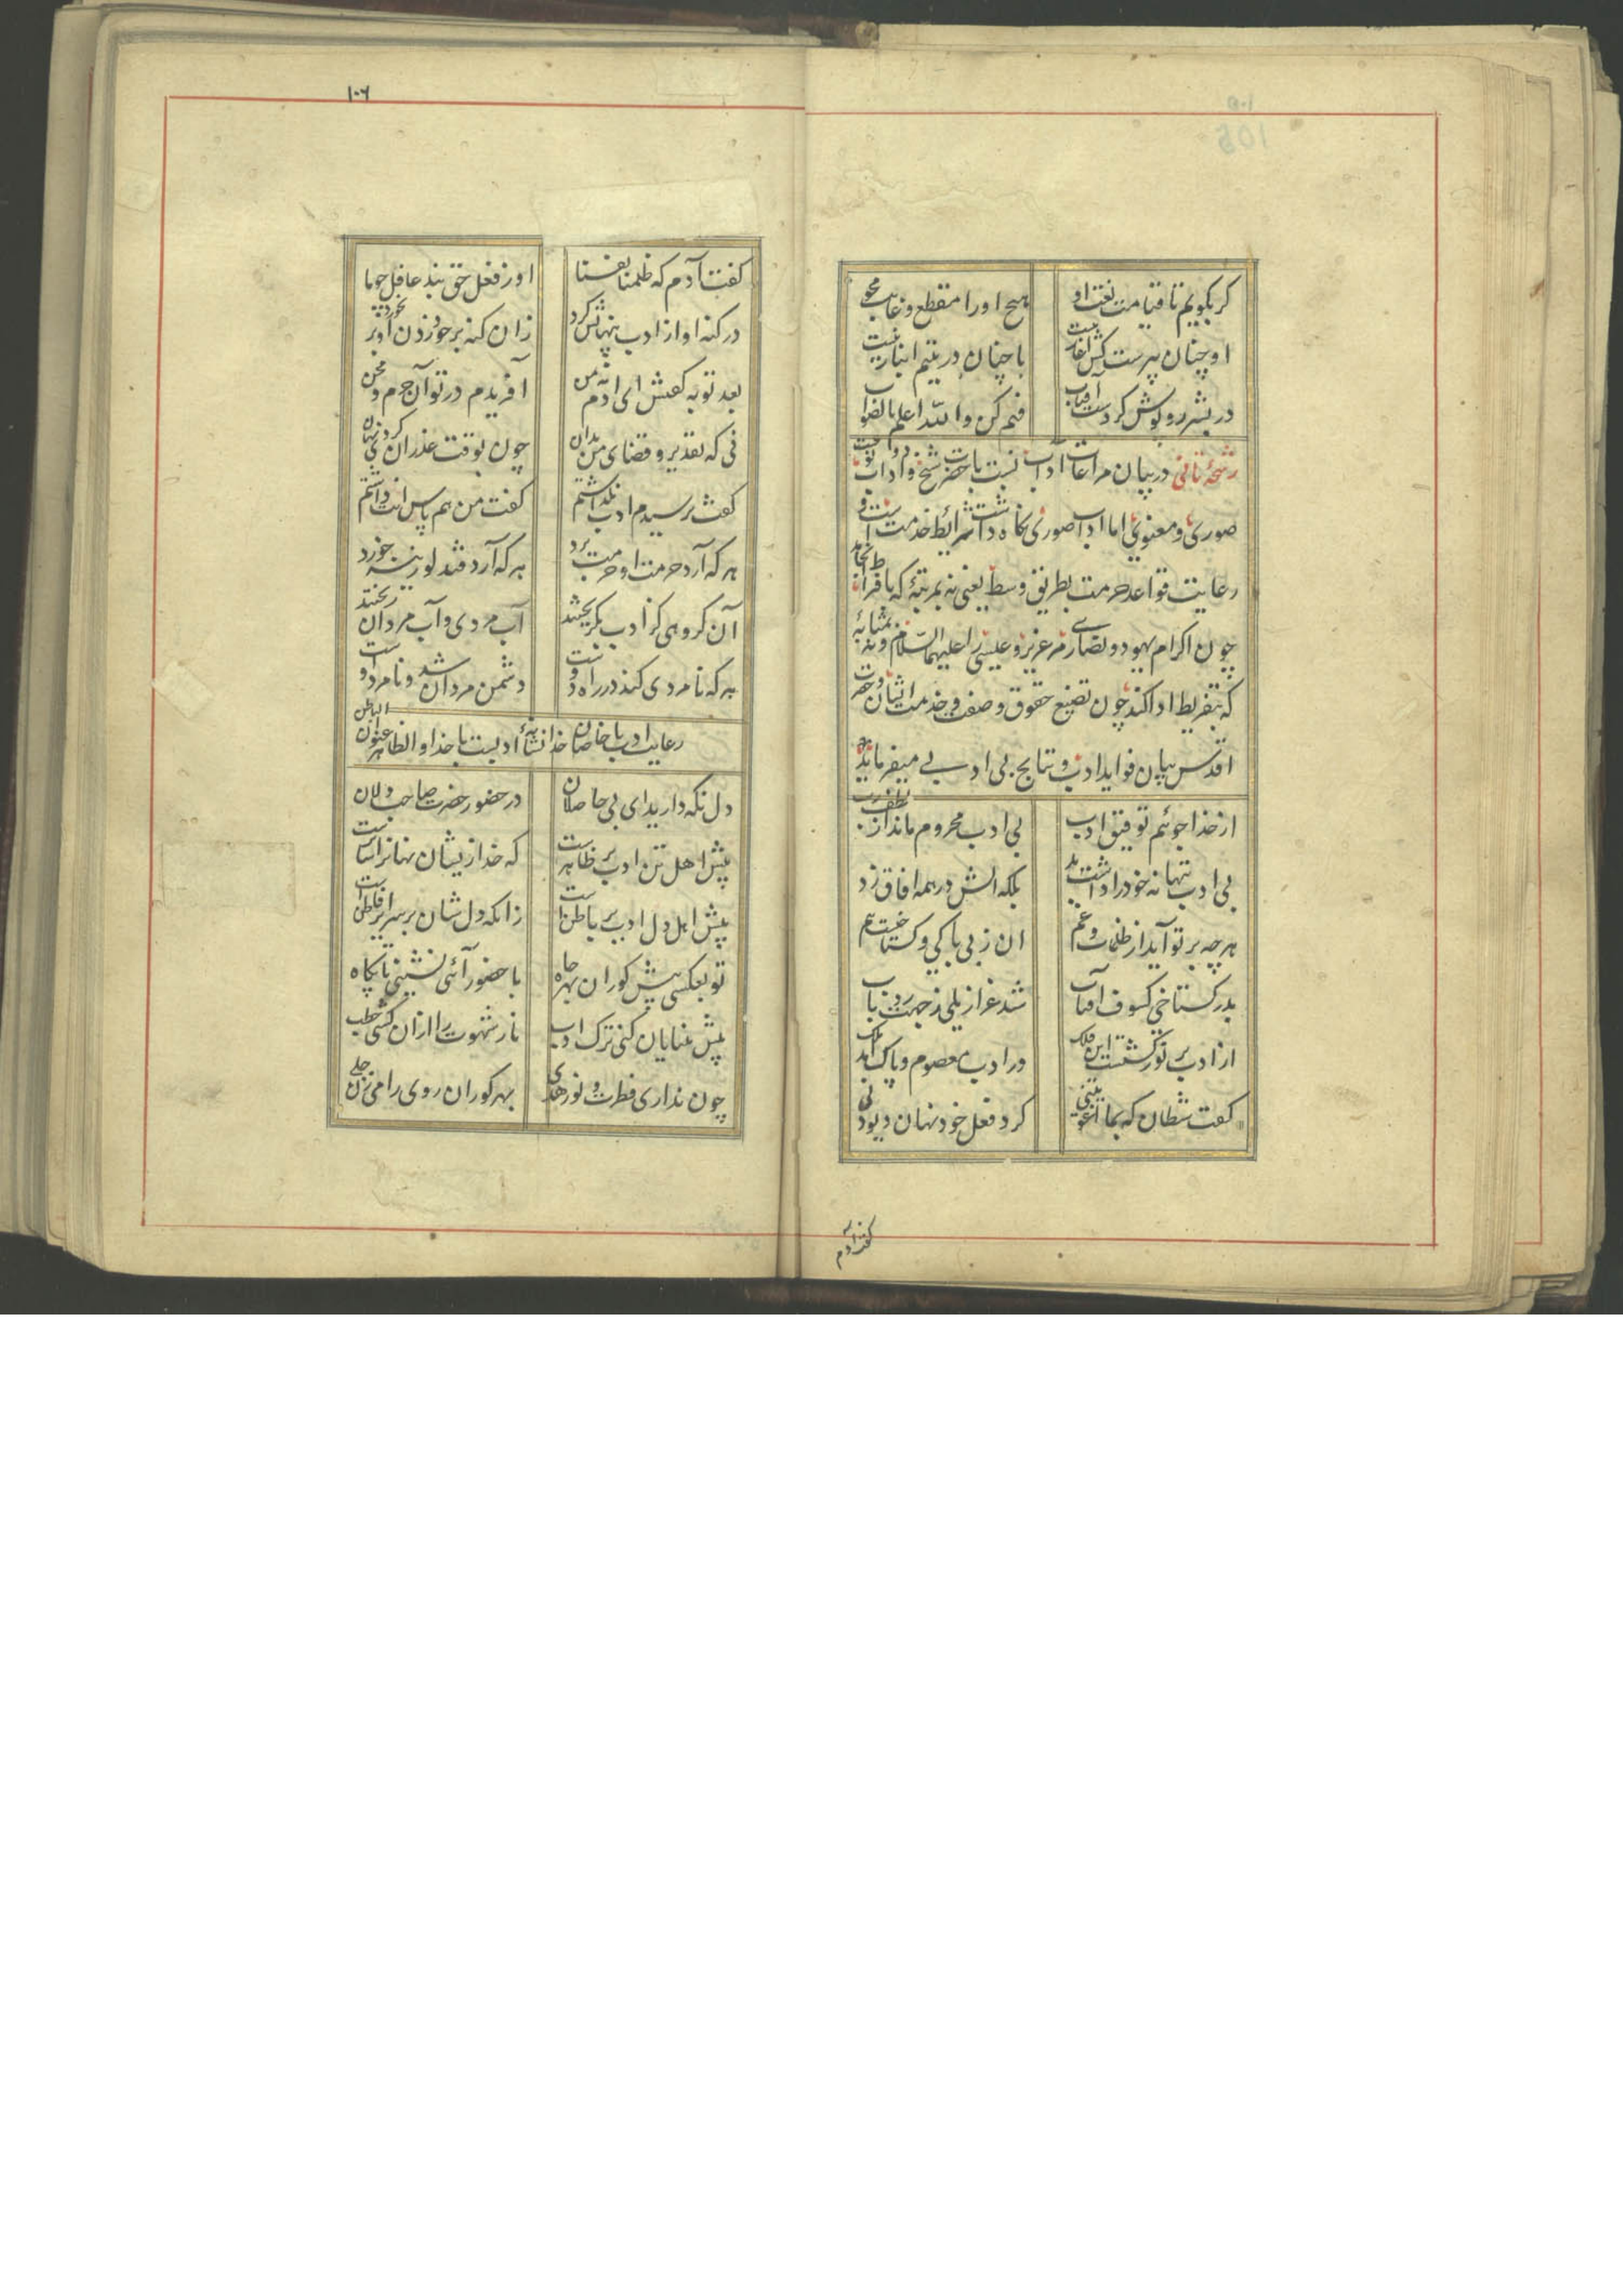 کر بکویم تا قیامت نعت او هیچ اورا مقطع و غایت مجو
او چنان پیرست کش آغاز نیست با چنان در یتیم انباز نیست
در بشر روپوش کردست آفتاب فهم کن والله اعلم بالصواب
رشحهٔ ثانی در بیان مراعات آداب نسبت با حضرت شیخ و آداب دو
صوری و معنوی اما آداب صوری نکاه داشت شرائط خدمت است و
رعایت قواعد حرمت بطریق وسط یعنی نه بمرتبهٔ که بافراط انجامد
چون اکرام یهود و نصاری مر عزیر و عیسی را علیهما السلام و نه بمثابهٔ
که بتفریط ادا کند چون تضییع حقوق و ضعف در خدمت ایشان و حضرت
اقدس بیان فواید ادب و نتایج بی ادبی میفرماید
از خدا جوئیم توفیق ادب بی ادب محروم ماند از لطف رب
بی ادب تنها نه خود را داشت بد بلکه آتش در همه آفاق زد
هر چه بر تو آید از ظلمات و غم آن ز بی باکی و کستاخیست هم
بد ز کستاخی کسوف آفتاب شد عزازیلی ز جرات رد باب
از ادب پر نور کشتست این فلک وز ادب معصوم و پاک آمد ملک
کفت شیطان که بما اغویتنی کرد فعل خود نهان دیو دنی
کفت آدم
۱۰۶
کفت آدم که ظلمنا نفسنا او ز فعل حق نبد غافل چو ما
در کنه او از ادب پنهانش کرد زان کنه بر خود زدن او بر بخورد
بعد توبه کفتش ای آدم نه من آفریدم در تو آن جرم و محن
نی که تقدیر و قضای من بد آن چون بوقت عذر کردی آن نهان
کفت ترسیدم ادب نکذاشتم کفت من هم پاس آنت داشتم
هر که آرد حرمت او حرمت برد هر که آرد قند لوزینه خورد
آن کروهی کز ادب بکریختند آب مردی و آب مردان ریختند
هر که نامردی کند در راه دوست دشمن مردان شد و نامرد اوست
رعایت ادب با خاصان خدا نشانهٔ ادبست با خدا و الظاهر عنوان الباطن
دل نکه دارید ای بی حاصلان در حضور حضرت صاحب دلان
پیش اهل تن ادب بر ظاهرست که خدا زیشان نهانرا ساترست
پیش اهل دل ادب بر باطن است زانکه دل شان بر سرایر فاطن است
تو بعکسی پیش کوران بهر جاه با حضور آئی نشینی پایکاه
پیش بینایان کنی ترک ادب نار شهوت را از ان کشتی حطب
چون نداری فطرت و نور هدی بهر کوران روی را می زن جلی